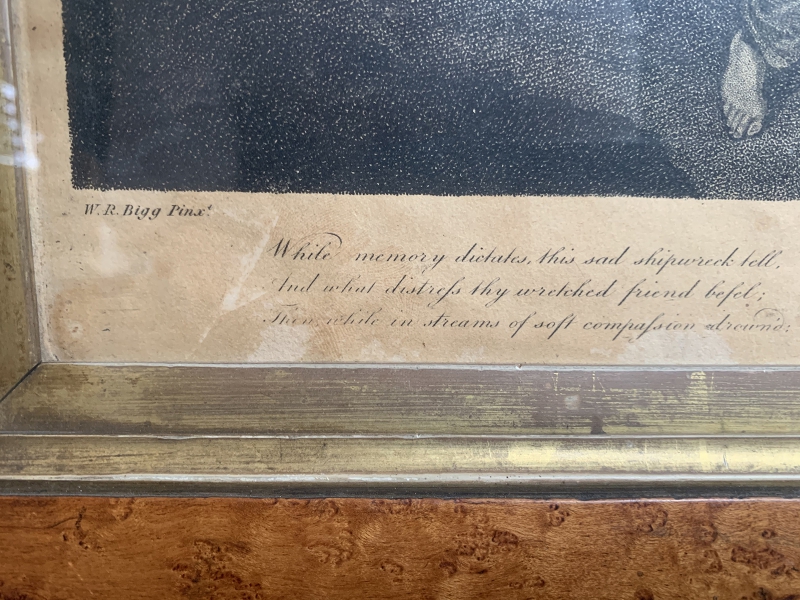 W. R. Bigg Pinxt.
While memory dictates, this sad shipwreck tell,
And what distreſs thy wretched friend befel;
Then while in streams of soft compaſsion drownd: